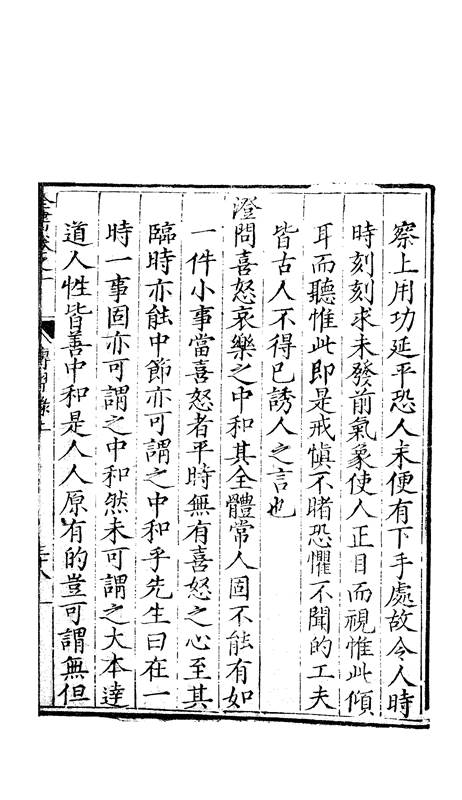 察上用功延平恐人未便有下手處故令人時
時刻刻求未發前氣象使人正目而視惟此傾
耳而聽惟此即是戒慎不睹恐懼不聞的工夫
皆古人不得已誘人之言也
澄問喜怒哀樂之中和其全體常人固不能有如
一件小事當喜怒者平時無有喜怒之心至其
臨時亦能中節亦可謂之中和乎先生曰在一
時一事固亦可謂之中和然未可謂之大本達
道人性皆善中和是人人原有的豈可謂無但